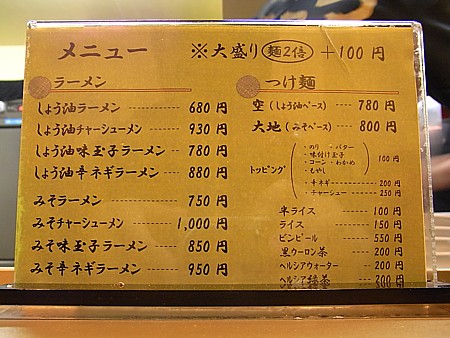 メニュー ※大盛り(麺2倍) +100円
ラーメン
しょう油ラーメン ---- 680円
しょう油チャーシューメン -- 930円
しょう油味玉子ラーメン -- 780円
しょう油辛ネギラーメン -- 880円
みそラーメン ---- 750円
みそチャーシューメン ---- 1,000円
みそ味玉子ラーメン ---- 850円
みそ辛ネギラーメン ---- 950円
つけ麺
空(しょう油ベース) ---- 780円
大地(みそベース) ---- 800円
トッピング
・のり ・バター
・味付け玉子
・コーン ・わかめ
・もやし
100円
・辛ネギ ---- 200円
・チャーシュー ---- 250円
半ライス ---- 100円
ライス ---- 150円
ビンビール ---- 550円
黒ウーロン茶 ---- 200円
ヘルシアウォーター ---- 200円
ヘルシア緑茶 ---- 200円